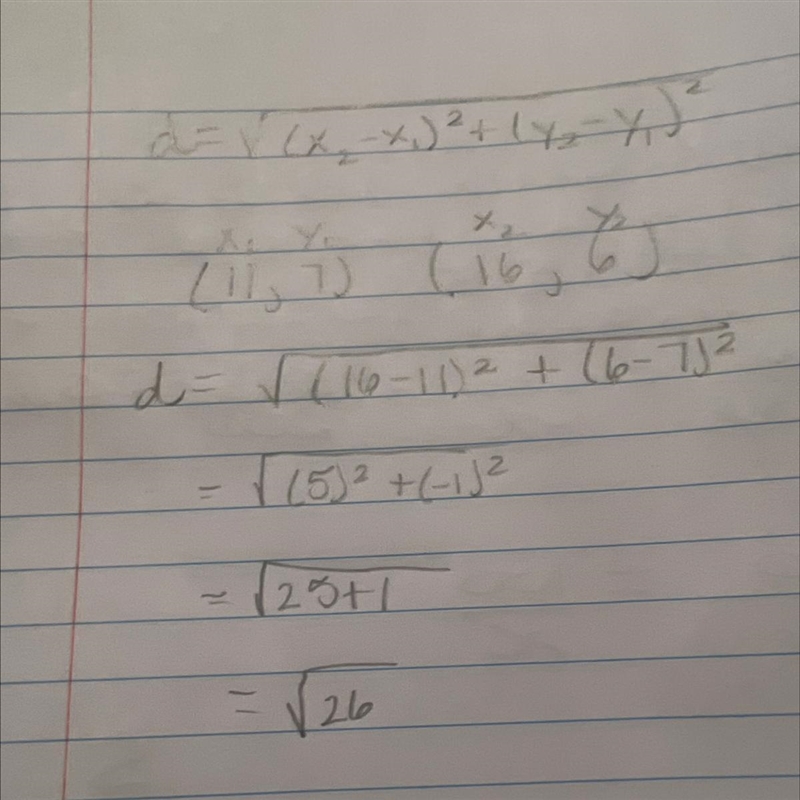 d = √(x₂ - x₁)² + (y₂ - y₁)²
x₁ y₁ x₂ y₂
(11, 7) (16, 6)
d = √(16 - 11)² + (6 - 7)²
= √(5)² + (-1)²
= √25+1
= √26